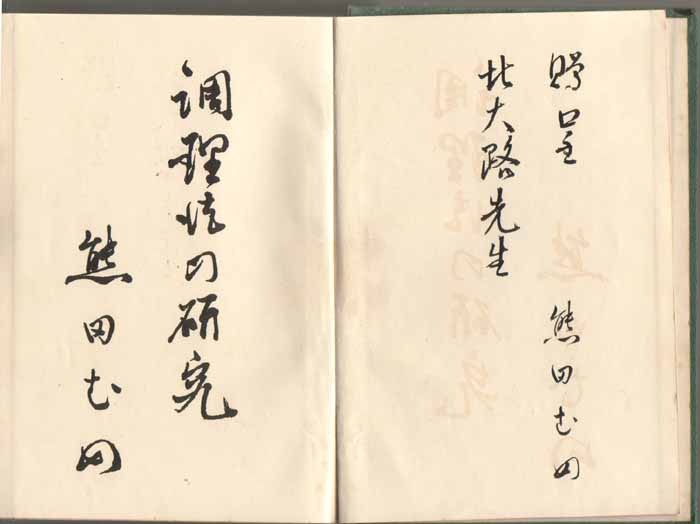 贈呈
北大路先生
熊田むめ
調理法の研究
熊田むめ